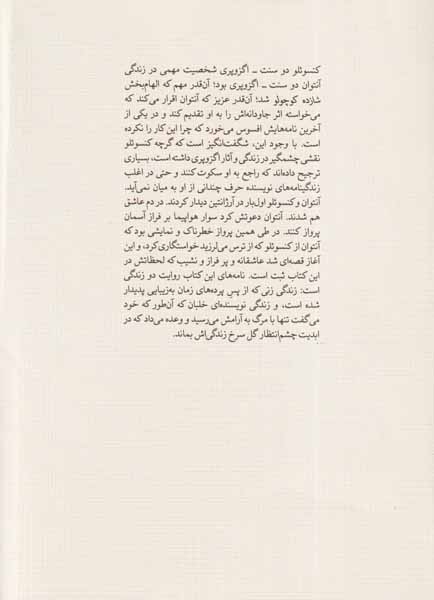 کنسوئلو دو سنت ـ اگزوپری شخصیت مهمی در زندگی
آنتوان دو سنت ـ اگزوپری بود؛ آن‌قدر مهم که الهام‌بخش
شازده کوچولو شد؛ آن‌قدر عزیز که آنتوان اقرار می‌کند که
می‌خواسته اثر جاودانه‌اش را به او تقدیم کند و در یکی از
آخرین نامه‌هایش افسوس می‌خورد که چرا این کار را نکرده
است. با وجود این، شگفت‌انگیز است که گرچه کنسوئلو
نقشی چشمگیر در زندگی و آثار اگزوپری داشته است، بسیاری
ترجیح داده‌اند که راجع به او سکوت کنند و حتی در اغلب
زندگینامه‌های نویسنده حرف چندانی از او به میان نمی‌آید.
آنتوان و کنسوئلو اول‌بار در آرژانتین دیدار کردند. در دم عاشق
هم شدند. آنتوان دعوتش کرد سوار هواپیما بر فراز آسمان
پرواز کنند. در طی همین پرواز خطرناک و نمایشی بود که
آنتوان از کنسوئلو که از ترس می‌لرزید خواستگاری کرد، و این
آغاز قصه‌ای شد عاشقانه و پر فراز و نشیب که لحظاتش در
این کتاب ثبت است. نامه‌های این کتاب روایت دو زندگی
است: زندگی زنی که از پسِ پرده‌های زمان به‌زیبایی پدیدار
شده است، و زندگی نویسنده‌ای خلبان که آن‌طور که خود
می‌گفت تنها با مرگ به آرامش می‌رسید و وعده می‌داد که در
ابدیت چشم‌انتظار گل سرخ زندگی‌اش بماند.